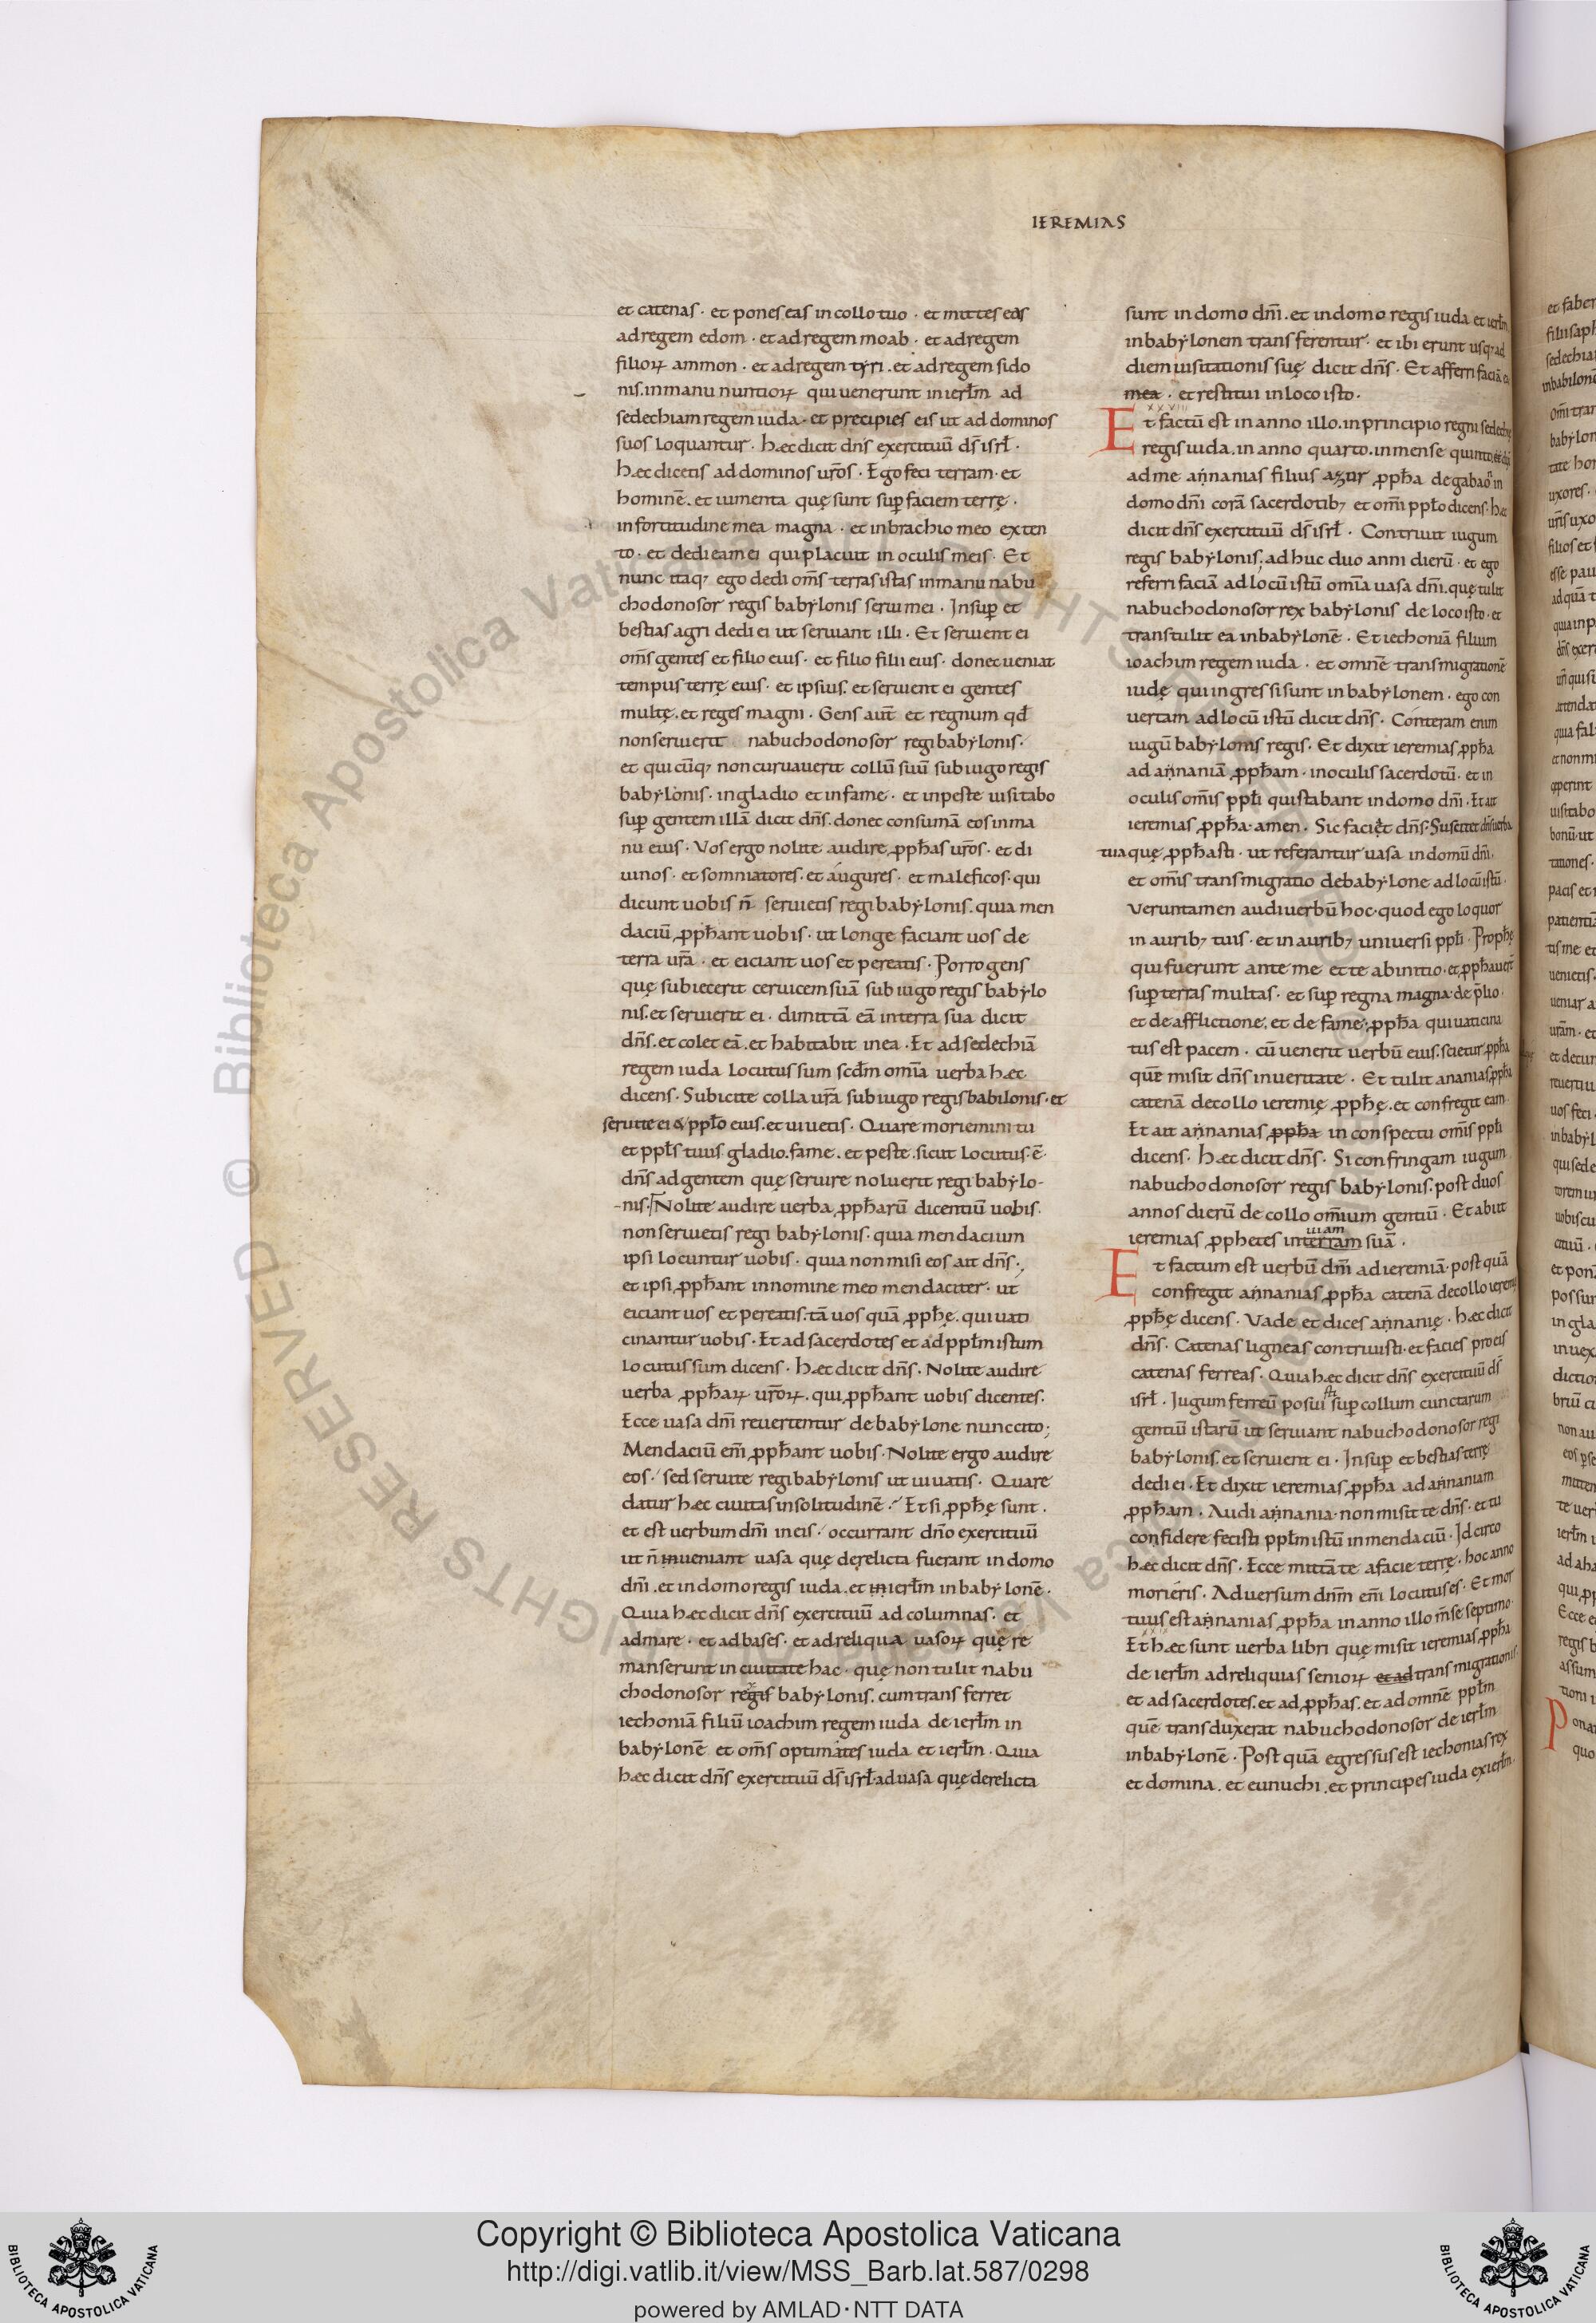 IEREMIAS
et catenas · et pones eas in collo tuo · et mittes eas
ad regem edom · et ad regem moab · et ad regem
filioꝝ ammon · et ad regem tyri . et ad regem sido
nis . in manu nuntioꝝ qui uenerunt in ierłm ad
sedechiam regem iuda · et precipies eis ut ad dominos
suos loquantur · hæc dicit dn̄s exercituū ds̄ isrł ·
hæc dicetis ad dominos ur̄os · Ego feci terram · et
hominē . et iumenta quę sunt sup̄ faciem terrę ·
in fortitudine mea magna · et in brachio meo exten
to · et dedi eam ei qui placuit in oculis meis · Et
nunc itaq; ego dedi om̄s terras istas in manu nabu
chodonosor regis babylonis serui mei · Insup̄ et
bestias agri dedi ei ut seruiant illi · Et seruient ei
om̄s gentes et filio eius · et filio filii eius · donec ueniat
tempus terrę eius · et ipsius . et seruient ei gentes
multę . et reges magni · Gens aut̄ et regnum qd̄
non seruierit nabuchodonosor regi babylonis ·
et quicūq; non curuauerit collū suū sub iugo regis
babylonis · in gladio et in fame · et in peste uisitabo
sup̄ gentem illā dicit dn̄s . donec consumā eos in ma
nu eius · Vos ergo nolite audire ꝓph̄as ur̄os · et di
uinos · et somniatores . et augures · et maleficos · qui
dicunt uobis n̄ seruietis regi babylonis . quia men
daciū ꝓph̄ant uobis · ut longe faciant uos de
terra ur̄a · et eiciant uos et pereatis · Porro gens
quę subiecerit ceruicem suā sub iugo regis babylo
nis . et seruierit ei · dimittā eā in terra sua dicit
dn̄s . et colet eā . et habitabit in ea · Et ad sedechiā
regem iuda locutus sum scd̄m om̄ia uerba hæc
dicens · Subicite colla ur̄a sub iugo regis babilonis · et
seruite ei & ppło eius . et uiuetis · Quare moriemini tu
et ppłs tuus gladio . fame . et peste . sicut locutus · ē ·
dn̄s ad gentem quę seruire noluerit regi babylo-
-nis · Nolite audire uerba ꝓph̄arū dicentiū uobis ·
non seruietis regi babylonis · quia mendacium
ipsi locuntur uobis · quia non misi eos ait dn̄s ·
et ipsi ꝓph̄ant in nomine meo mendaciter · ut
eiciant uos et pereatis . tā uos quā ꝓph̄ę . qui uati
cinantur uobis · Et ad sacerdotes et ad ppłm istum
locutus sum dicens · hæc dicit dn̄s · Nolite audire
uerba ꝓph̄aꝝ ur̄oꝝ . qui ꝓph̄ant uobis dicentes ·
Ecce uasa dn̄i reuertentur de babylone nunc cito ;
Mendaciū em̄ ꝓph̄ant uobis · Nolite ergo audire
eos · sed seruite regi babylonis ut uiuatis · Quare
datur hæc ciuitas in solitudinē · Et si ꝓph̄ę sunt ·
et est uerbum dn̄i in eis · occurrant dn̄o exercituū
ut n̄ ueniant uasa quę derelicta fuerant in domo
dn̄i . et in domo regis iuda . et in ierłm in babylonē ·
Quia hæc dicit dn̄s exercituū ad columnas · et
ad mare · et ad bases · et ad reliqua uasoꝝ quę re
manserunt in ciuitate hac · quę non tulit nabu
chodonosor regis babylonis . cum transferret
iechoniā filiū ioachim regem iuda de ierłm in
babylonē et om̄s optimates iuda et ierłm · Quia
hæc dicit dn̄s exercituū ds̄ isrł · ad uasa quę derelicta
sunt in domo dn̄i . et in domo regis iuda et ierłm
in babylonem transferentur · et ibi erunt usq; ad
diem uisitationis suę dicit dn̄s · Et afferri faciā ea
mea · et restitui in loco isto ·
xxviii
Et factū est in anno illo . in principio regni sedechię
regis iuda . in anno quarto . in mense quinto
ad me annanias filius azur ꝓph̄a de gabaon in
domo dn̄i corā sacerdotib; et om̄i ppło dicens · hæc
dicit dn̄s exercituū ds̄ isrł · Contriui iugum
regis babylonis . adhuc duo anni dierū · et ego
referri faciā ad locū istū om̄ia uasa dn̄i . quę tulit
nabuchodonosor rex babylonis de loco isto · et
transtulit ea in babylonē · Et iechoniā filium
ioachim regem iuda · et omnē transmigrationē
iudę qui ingressi sunt in babylonem · ego con
uertam ad locū istū dicit dn̄s · Conteram enim
iugū babylonis regis · Et dixit ieremias ꝓph̄a
ad annaniā ꝓph̄am · in oculis sacerdotū · et in
oculis om̄is ppłi qui stabant in domo dn̄i · Et ait
ieremias ꝓph̄a · amen · Sic faciet dn̄s · Suscitet dn̄s uerba
tua quę ꝓph̄asti · ut referantur uasa in domū dn̄i ·
et om̄is transmigratio de babylone ad locū istū ·
Veruntamen audi uerbū hoc · quod ego loquor
in aurib; tuis · et in aurib; uniuersi ppłi · Prophę
qui fuerunt ante me et te ab initio · et ꝓph̄auert̄
sup̄ terras multas · et sup̄ regna magna · de p̄lio ·
et de afflictione . et de fame · ꝓph̄a qui uaticina
tus est pacem · cū uenerit uerbū eius . scietur ꝓph̄a
quē misit dn̄s in ueritate · Et tulit ananias ꝓph̄a
catenā de collo ieremię ꝓph̄ę . et confregit eam ·
Et ait annanias ꝓph̄a in conspectu om̄is ppłi
dicens · hæc dicit dn̄s · Si confringam iugum
nabuchodonosor regis babylonis . post duos
annos dierū de collo om̄ium gentiū · Et abiit
uiam
ieremias ꝓphetes in terram suā ·
Et factum est uerbū dn̄i ad ieremiā · post quā
confregit annanias ꝓph̄a catenā de collo ieremię
ꝓph̄ę dicens · Vade et dices annanię · hæc dicit
dn̄s · Catenas ligneas contriuisti · et facies pro eis
catenas ferreas · Quia hæc dicit dn̄s exercituū ds̄
isrł · Iugum ferreū posui sup̄ collum cunctarum
gentiū istarū ut seruiant nabuchodonosor regi
babylonis . et seruient ei · Insup̄ et bestias terrę
dedi ei · Et dixit ieremias ꝓph̄a ad annaniam
ꝓph̄am · Audi annania · non misit te dn̄s · et tu
confidere fecisti ppłm istū in mendaciū · Idcirco
hæc dicit dn̄s · Ecce mittā te a facie terrę · hoc anno
morieris · Aduersum dn̄m em̄ locutus es · Et mor
tuus est annanias ꝓph̄a in anno illo m̄se septimo ·
Et hæc sunt uerba libri quę misit ieremias ꝓph̄a
de ierłm ad reliquias senioꝝ et ad transmigrationis
et ad sacerdotes . et ad ꝓph̄as . et ad omnē ppłm
quē transduxerat nabuchodonosor de ierłm
in babylonē · Post quā egressus est iechonias rex
et domina . et eunuchi . et principes iuda ex ierłm ·
Copyright © Biblioteca Apostolica Vaticana
http://digi.vatlib.it/view/MSS_Barb.lat.587/0298
powered by AMLAD·NTT DATA